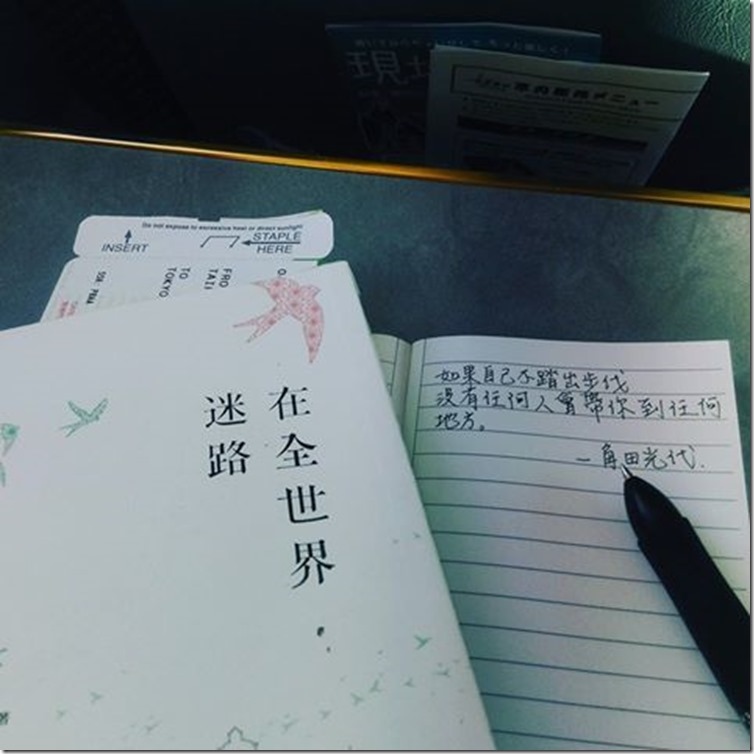 現
車内販売メニュー
Do not expose to excessive heat or direct sunlight
INSERT
STAPLE
HERE
TO
TOKYO
在全世界
迷路
著
如果自己不踏出步伐
沒有任何人會帶你到任何
地方。
—角田光代.